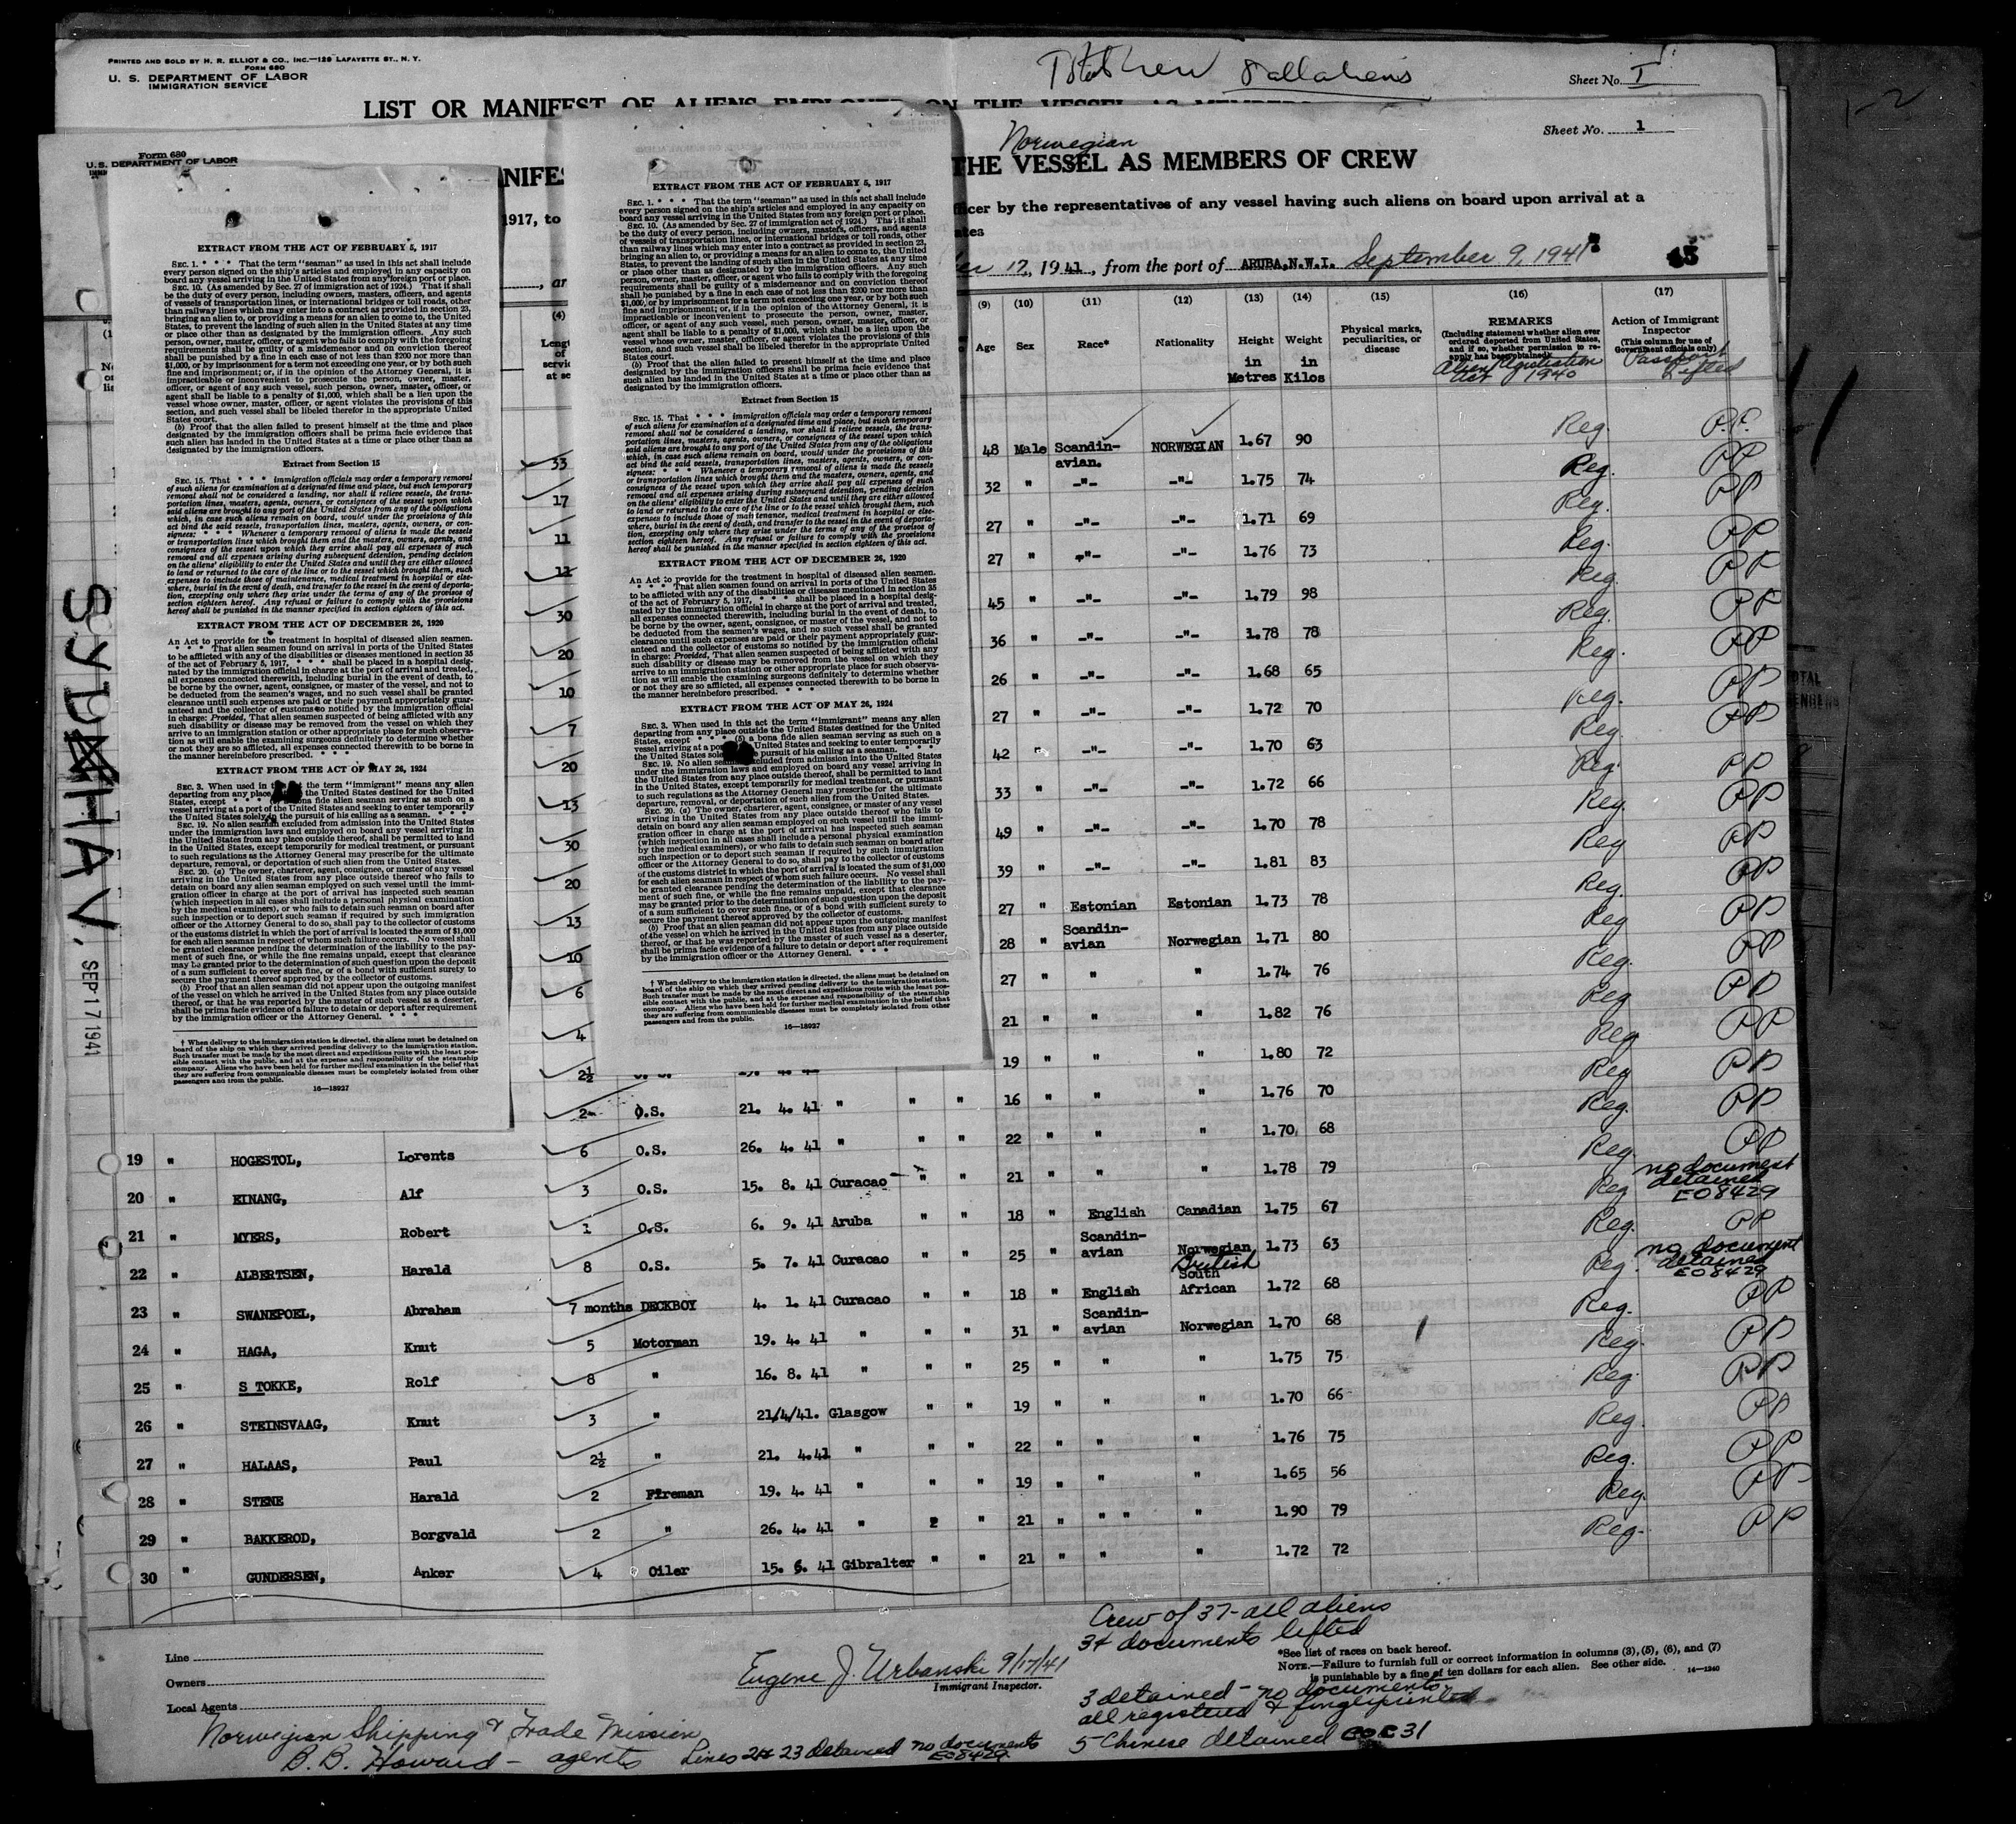 PRINTED AND SOLD BY H. R. ELLIOT & CO., INC.—129 LAFAYETTE ST., N. Y.
FORM 680
U. S. DEPARTMENT OF LABOR
IMMIGRATION SERVICE
Sheet No. I
LIST OR MANIFEST OF ALIENS EMPLOYED ON THE VESSEL AS MEMBERS
Norwegian
Sheet No. 1
Form 680
U. S. DEPARTMENT OF LABOR
THE VESSEL AS MEMBERS OF CREW
1917, to
officer by the representatives of any vessel having such aliens on board upon arrival at a
17, 1941, from the port of ARUBA, N.W.I. September 9, 1941
EXTRACT FROM THE ACT OF FEBRUARY 5, 1917
SEC. 1. * * * That the term "seaman" as used in this act shall include
every person signed on the ship's articles and employed in any capacity on
board any vessel arriving in the United States from any foreign port or place.
SEC. 10. (As amended by Sec. 27 of immigration act of 1924.) That it shall
be the duty of every person, including owners, masters, officers, and agents
of vessels of transportation lines, or international bridges or toll roads, other
than railway lines which may enter into a contract as provided in section 23,
bringing an alien to, or providing a means for an alien to come to, the United
States, to prevent the landing of such alien in the United States at any time
or place other than as designated by the immigration officers. Any such
person, owner, master, officer, or agent who fails to comply with the foregoing
requirements shall be guilty of a misdemeanor and on conviction thereof
shall be punished by a fine in each case of not less than $200 nor more than
$1,000, or by imprisonment for a term not exceeding one year, or by both such
fine and imprisonment; or, if in the opinion of the Attorney General, it is
impracticable or inconvenient to prosecute the person, owner, master,
officer, or agent of any such vessel, such person, owner, master, officer, or
agent shall be liable to a penalty of $1,000, which shall be a lien upon the
vessel whose owner, master, officer, or agent violates the provisions of this
section, and such vessel shall be libeled therefor in the appropriate United
States court.
(b) Proof that the alien failed to present himself at the time and place
designated by the immigration officers shall be prima facie evidence that
such alien has landed in the United States at a time or place other than as
designated by the immigration officers.
Extract from Section 15
SEC. 15. That * * * immigration officials may order a temporary removal
of such aliens for examination at a designated time and place, but such temporary
removal shall not be considered a landing, nor shall it relieve vessels, the trans-
portation lines, masters, agents, owners, or consignees of the vessel upon which
said aliens are brought to any port of the United States from any of the obligations
which, in case such aliens remain on board, would under the provisions of this
act bind the said vessels, transportation lines, masters, agents, owners, or con-
signees: * * * Whenever a temporary removal of aliens is made the vessels
or transportation lines which brought them and the masters, owners, agents, and
consignees of the vessel upon which they arrive shall pay all expenses of such
removal and all expenses arising during subsequent detention, pending decision
on the aliens' eligibility to enter the United States and until they are either allowed
to land or returned to the care of the line or to the vessel which brought them, such
expenses to include those of maintenance, medical treatment in hospital or else-
where, burial in the event of death, and transfer to the vessel in the event of deporta-
tion, excepting only where they arise under the terms of any of the provisos of
section eighteen hereof. Any refusal or failure to comply with the provisions
hereof shall be punished in the manner specified in section eighteen of this act.
EXTRACT FROM THE ACT OF DECEMBER 26, 1920
An Act to provide for the treatment in hospital of diseased alien seamen.
* * * That alien seamen found on arrival in ports of the United States
to be afflicted with any of the disabilities or diseases mentioned in section 35
of the act of February 5, 1917, * * * shall be placed in a hospital desig-
nated by the immigration official in charge at the port of arrival and treated,
all expenses connected therewith, including burial in the event of death, to
be borne by the owner, agent, consignee, or master of the vessel, and not to
be deducted from the seamen's wages, and no such vessel shall be granted
clearance until such expenses are paid or their payment appropriately guar-
anteed and the collector of customs so notified by the immigration official
in charge: Provided, That alien seamen suspected of being afflicted with any
such disability or disease may be removed from the vessel on which they
arrive to an immigration station or other appropriate place for such observa-
tion as will enable the examining surgeons definitely to determine whether
or not they are so afflicted, all expenses connected therewith to be borne in
the manner hereinbefore prescribed. * * *
EXTRACT FROM THE ACT OF MAY 26, 1924
SEC. 3. When used in the term "immigrant" means any alien
departing from any place the United States destined for the United
States, except * * * bona fide alien seaman serving as such on a
vessel arriving at a port of the United States and seeking to enter temporarily
the United States solely in the pursuit of his calling as a seaman. * * *
SEC. 19. No alien seaman excluded from admission into the United States
under the immigration laws and employed on board any vessel arriving in
the United States from any place outside thereof, shall be permitted to land
in the United States, except temporarily for medical treatment, or pursuant
to such regulations as the Attorney General may prescribe for the ultimate
departure, removal, or deportation of such alien from the United States.
SEC. 20. (a) The owner, charterer, agent, consignee, or master of any vessel
arriving in the United States from any place outside thereof who fails to
detain on board any alien seaman employed on such vessel until the immi-
gration officer in charge at the port of arrival has inspected such seaman
(which inspection in all cases shall include a personal physical examination
by the medical examiners), or who fails to detain such seaman on board after
such inspection or to deport such seaman if required by such immigration
officer or the Attorney General to do so, shall pay to the collector of customs
of the customs district in which the port of arrival is located the sum of $1,000
for each alien seaman in respect of whom such failure occurs. No vessel shall
be granted clearance pending the determination of the liability to the pay-
ment of such fine, or while the fine remains unpaid, except that clearance
may be granted prior to the determination of such question upon the deposit
of a sum sufficient to cover such fine, or of a bond with sufficient surety to
secure the payment thereof approved by the collector of customs.
(b) Proof that an alien seaman did not appear upon the outgoing manifest
of the vessel on which he arrived in the United States from any place outside
thereof, or that he was reported by the master of such vessel as a deserter,
shall be prima facie evidence of a failure to detain or deport after requirement
by the immigration officer or the Attorney General. * * *
† When delivery to the immigration station is directed, the aliens must be detained on
board of the ship on which they arrived pending delivery to the immigration station.
Such transfer must be made by the most direct and expeditious route with the least pos-
sible contact with the public, and at the expense and responsibility of the steamship
company. Aliens who have been held for further medical examination in the belief that
they are suffering from communicable diseases must be completely isolated from other
passengers and from the public.
16—18927
EXTRACT FROM THE ACT OF FEBRUARY 5, 1917
EXTRACT FROM THE ACT OF DECEMBER 26, 1920
EXTRACT FROM THE ACT OF MAY 26, 1924
16—18927
(9) (10) (11) (12) (13) (14) (15) (16) (17)
Age Sex Race* Nationality Height in Metres Weight in Kilos Physical marks, peculiarities, or disease
REMARKS
(Including statement whether alien ever
ordered deported from United States,
and if so, whether permission to re-
apply has been obtained)
Alien Registration Act 1940
Action of Immigrant Inspector
(This column for use of
Government officials only)
Passport Lifted
33 48 Male Scandin-avian. NORWEGIAN 1.67 90 Reg. P.P.
17 32 " -"- -"- 1.75 74 Reg. PP
11 27 " -"- -"- 1.71 69 Reg. PP
11 27 " -"- -"- 1.76 73 Reg. PP
30 45 " -"- -"- 1.79 98 Reg. PP
20 36 " -"- -"- 1.78 78 Reg. PP
10 26 " -"- -"- 1.68 65 Reg. PP
7 27 " -"- -"- 1.72 70 Reg. PP
20 42 " -"- -"- 1.70 63 Reg. PP
13 33 " -"- -"- 1.72 66 Reg. PP
30 49 " -"- -"- 1.70 78 Reg. PP
20 39 " -"- -"- 1.81 83 Reg PP
13 27 " Estonian Estonian 1.73 78 Reg. PP
10 28 " Scandin-avian Norwegian 1.71 80 Reg PP
6 27 " " " 1.74 76 Reg. PP
4 21 " " " 1.82 76 Reg PP
2½ 19 " " " 1.80 72 Reg PP
2 O.S. 21. 4. 41 " " " 16 " " " 1.76 70 Reg PP
19 " HOGESTOL, Lorents 6 O.S. 26. 4. 41 " " " 22 " " " 1.70 68 Reg. PP
20 " EINANG, Alf 3 O.S. 15. 8. 41 Curacao " " 21 " " " 1.78 79 Reg PP
21 " MYERS, Robert 1 O.S. 6. 9. 41 Aruba " " 18 " English Canadian 1.75 67 Reg no document detained EO8429
22 " ALBERTSEN, Harald 8 O.S. 5. 7. 41 Curacao " " 25 " Scandin-avian Norwegian 1.73 63 Reg. PP
23 " SWANEPOEL, Abraham 7 months DECKBOY 4. 1. 41 Curacao " " 18 " English British South African 1.72 68 Reg. no document detained EO8429
24 " HAGA, Knut 5 Motorman 19. 4. 41 " " " 31 " Scandin-avian Norwegian 1.70 68 Reg. PP
25 " STOKKE, Rolf 8 " 16. 8. 41 " " " 25 " " " 1.75 75 Reg. PP
26 " STEINSVAAG, Knut 3 " 21/4/41. Glasgow " " 19 " " " 1.70 66 Reg. PP
27 " HALAAS, Paul 2½ " 21. 4.41 " " " 22 " " " 1.76 75 Reg. PP
28 " STENE Harald 2 Fireman 19. 4. 41 " " " 19 " " " 1.65 56 Reg. PP
29 " BAKKEROD, Borgvald 2 " 26. 4. 41 " " 21 " " " " 1.90 79 Reg. PP
30 " GUNDERSEN, Anker 4 Oiler 15. 6. 41 Gibralter " " 21 " " " 1.72 72 Reg. PP
SEP 17 1941
Line
Owners
Local Agents
Norwegian Shipping & Trade Mission
B. B. Howard - agents
Eugene J. Urbanski 9/17/41
Immigrant Inspector.
Lines 21 23 Detained no documents
EO8429
Crew of 37 - all aliens
34 documents lifted
*See list of races on back hereof.
NOTE.—Failure to furnish full or correct information in columns (3), (5), (6), and (7)
is punishable by a fine of ten dollars for each alien. See other side.
14—1240
3 detained - no documents
all registered & fingerprinted
5 Chinese detained